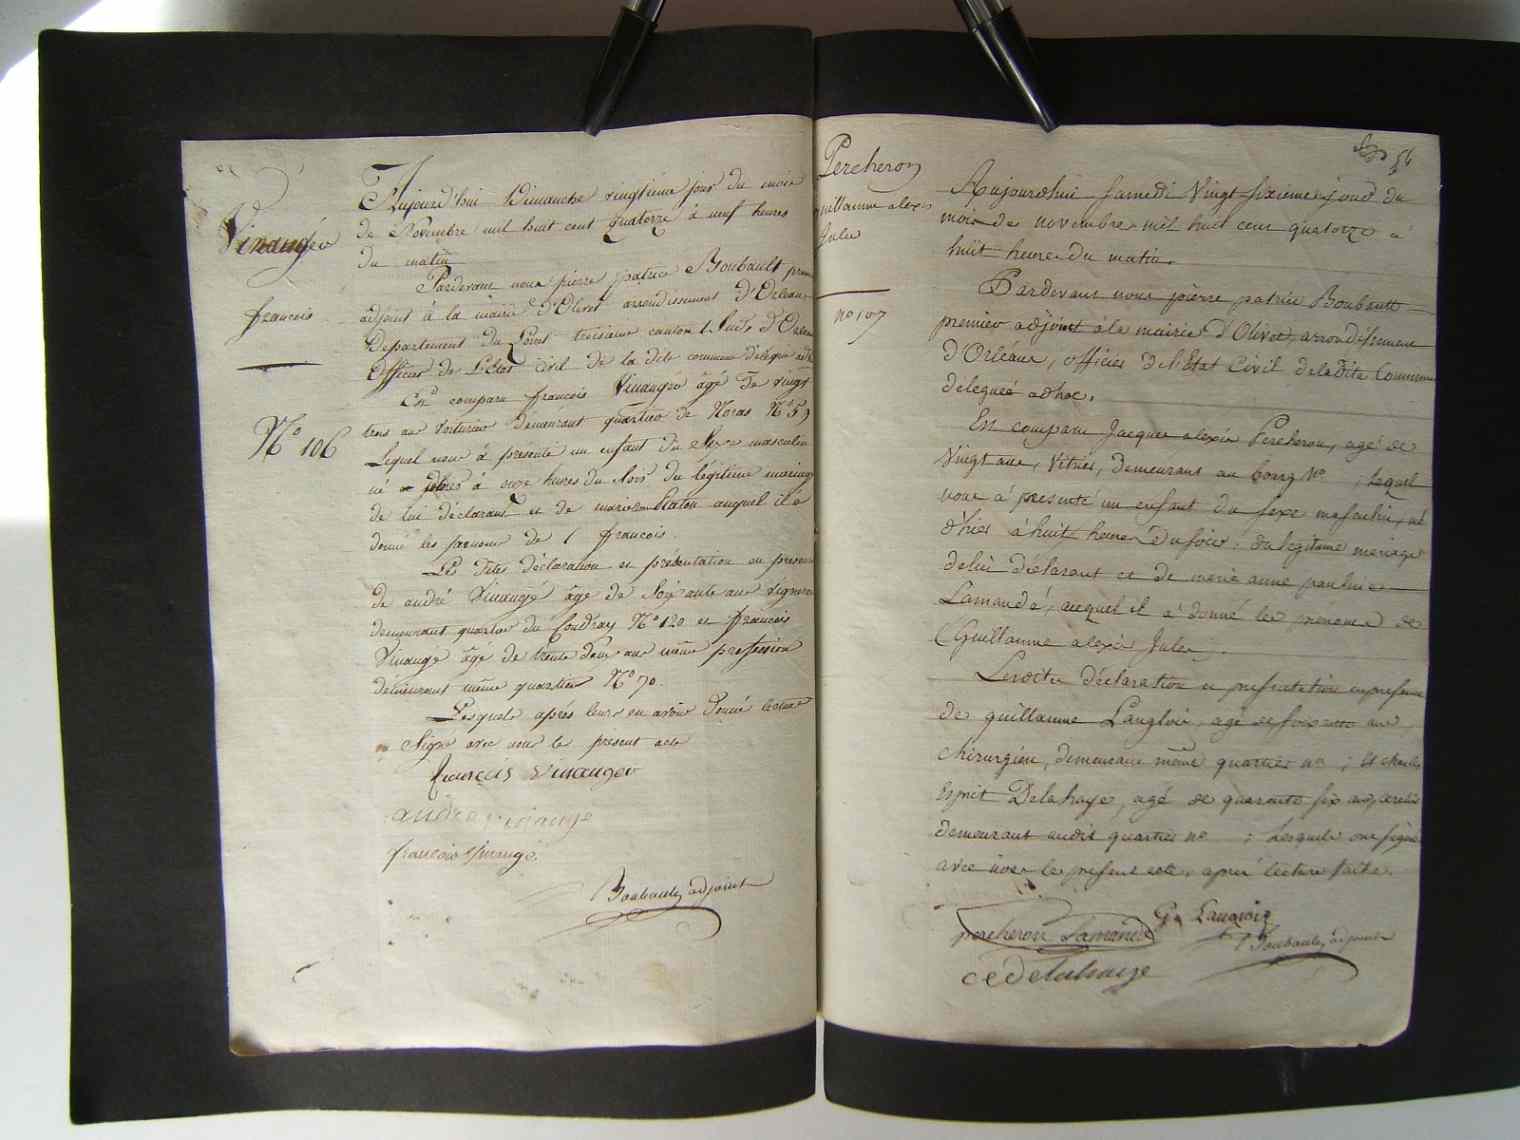 Vinangé
françois
N° 106
Aujourd'hui Dimanche vingtieme jour du mois
de Novembre mil huit cent quatorze à neuf heures
du matin
Pardevant nous pierre patrice Boubault premier
adjoint à la mairie d'Olivet arrondissement D'Orléans
Departement du Loiret troisieme canton Sud D'Orléans
Officier de L'Etat Civil de la dite commune délégué
Est comparu françois Vinangé âgé de vingt
trois ans demeurant quartier de Noras N° 59
Lequel nous à présenté un enfant du Sexe masculin
né à onze heures du Soir du légitime mariage
de lui déclarant et de marie auquel il a
donné les prenoms de françois.
Les dites déclaration et présentation en presence
de andré Vinangé âgé de Soixante ans vigneron
demeurant quartier du Coudray N° 120 et françois
Vinangé âgé de trente deux ans même profession
demeurant même quartier N° 70.
Lesquels après leur en avoir donné lecture
Signé avec nous le present acte
françois vinanger
andré vinange
françois vinangé
Boubault adjoint
56
Percheron
guillaume alexis
Jules
n° 107
Aujourdhui Samedi Vingt Sixieme jour du
mois de novembre mil huit cent quatorze à
huit heures du matin.
Pardevant nous pierre patrice Boubault
premier adjoint à la mairie d'Olivet, arrondissement
d'Orléans, officier de l'Etat Civil de la dite Commune
delegué adhoc.
Est comparu Jacques alexis Percheron, agé de
Vingt ans, Vitrier, demeurant au bourg N° , Lequel
nous à presenté un enfant du sexe masculin, né
d'hier à huit heures du soir, du legitime mariage
de lui déclarant et de marie anne pauline
Lamandé, auquel il à donné les prenoms de
Guillaume alexis Jules.
Lesdites déclaration et presentation en presence
de guillaume Langlois, agé de soixante ans,
chirurgien, demeurant même quartier n° ; Et charles
Esprit Delahaye, agé de quarante six ans,
demeurant audit quartier n° ; Lesquels ont signé
avec nous le present acte, après lecture faite.
percheron Lamandé
G. Langlois
Boubault adjoint
c e Delahaye